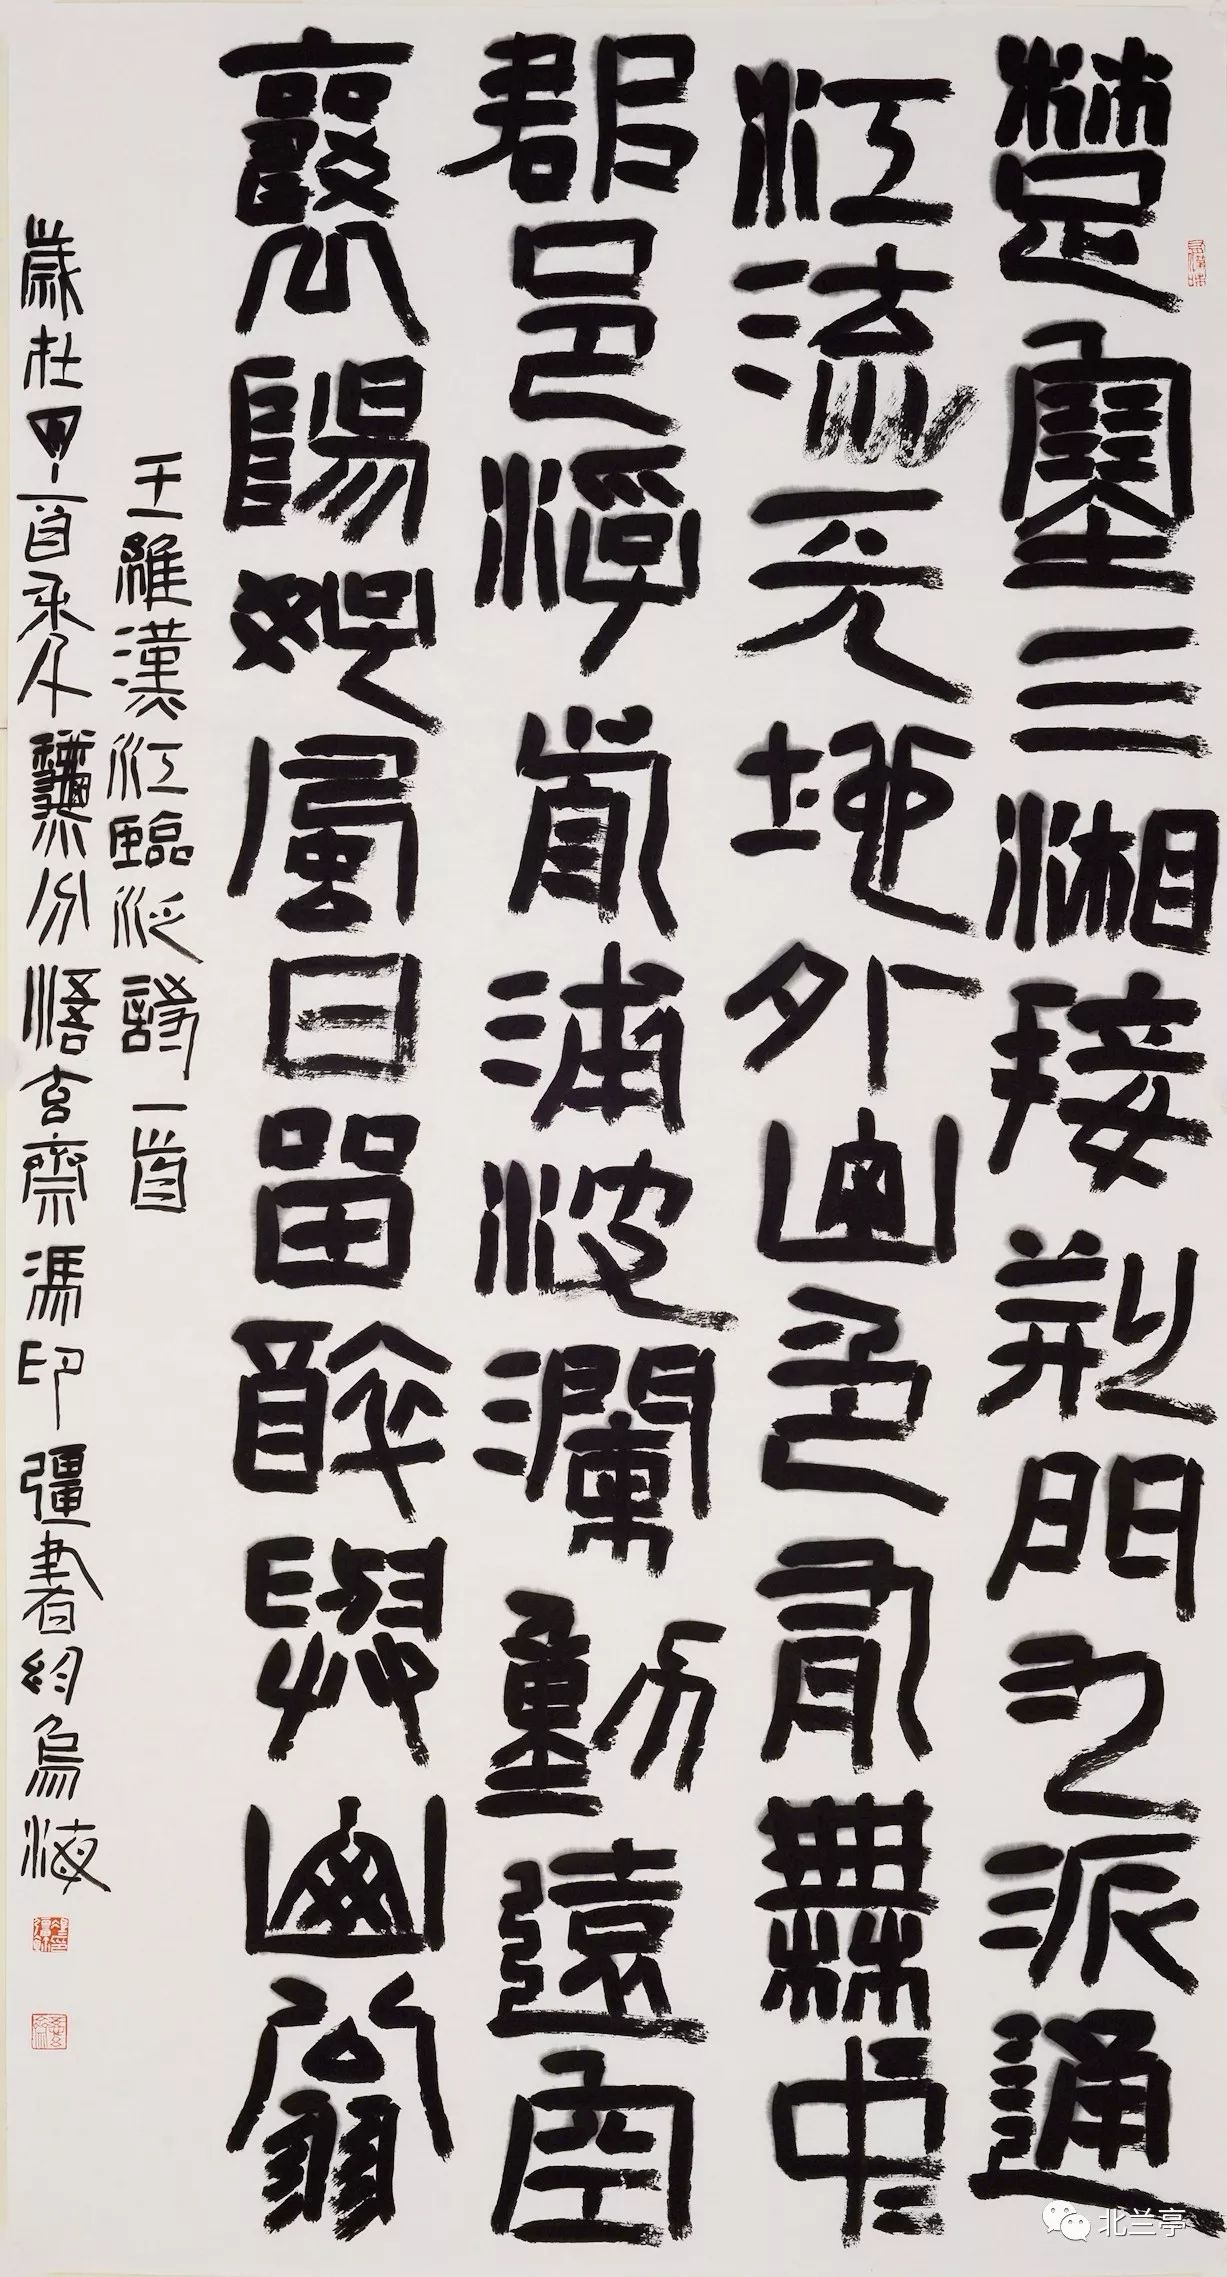 楚塞三湘接荊門九派通
江流天地外山色有無中
郡邑浮前浦波瀾動遠空
襄陽好風日留醉與山翁
王維漢江臨泛詩一首
歲在甲年龝分悟玄齋馮印彊書於烏海
北兰亭